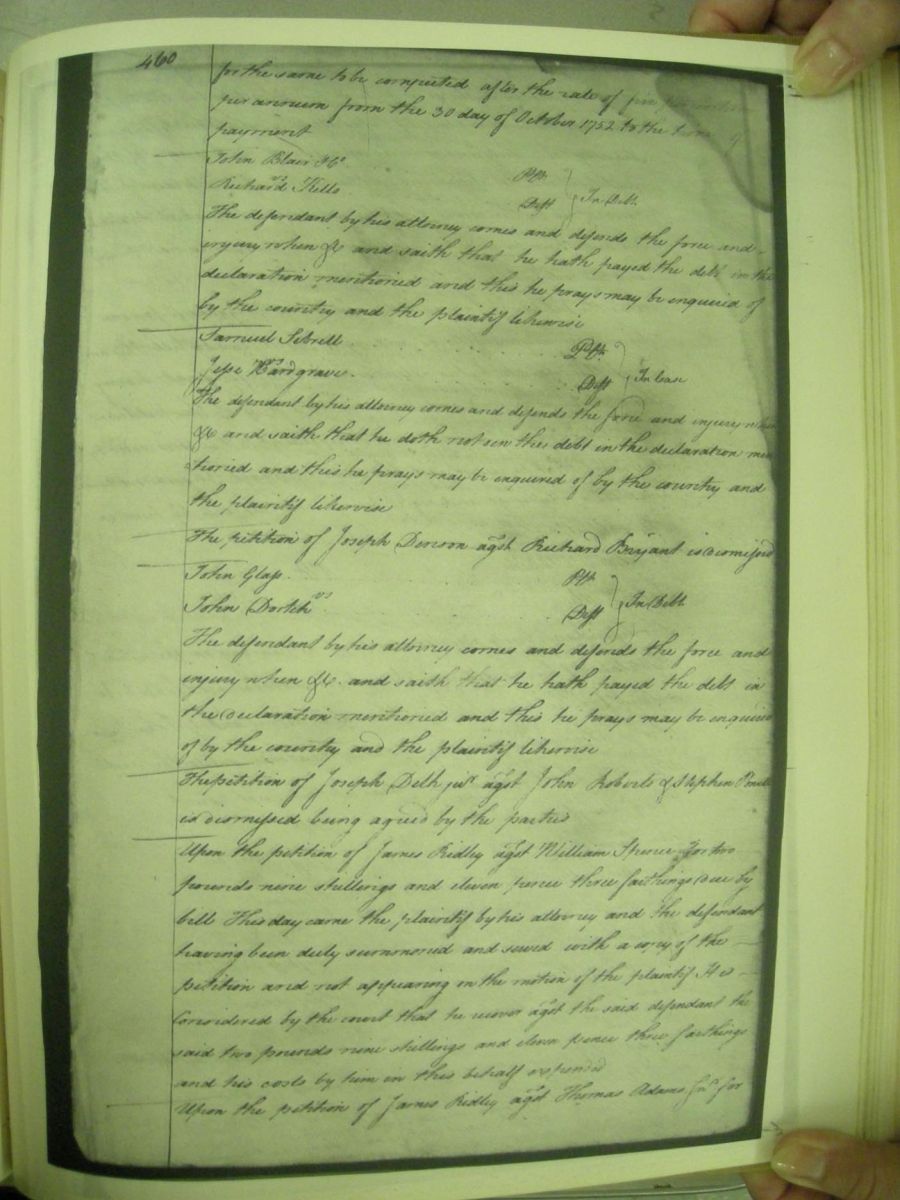 460
for the same to be computed after the rate of five per
per annum from the 30 day of October 1752 to the time of
payment
John Blair & Co Plt
vs In Debt
Richard Kello Deft
The defendant by his attorney comes and defends the force and
injury when &c and saith that he hath payed the debt in the
declaration mentioned and this he prays may be enquired of
by the country and the plaintif likewise
Samuel Sebrell Plt
vs In Case
Jesse Hardgrave Deft
The defendant by his attorney comes and defends the force and injury when
&c and saith that he doth not own the debt in the declaration men
tioned and this he prays may be enquired of by the country and
the plaintif likewise
The petition of Joseph Denson agst Richard Bryant is dismissed
John Glass Plt
vs In Debt
John Dortch Deft
The defendant by his attorney comes and defends the force and
injury when &c. and saith that he hath payed the debt in
the declaration mentioned and this he prays may be enquired
of by the country and the plaintif likewise
The petition of Joseph Delk junr agst John Roberts & Stephen
is dismissed being agreed by the parties
Upon the petition of James Ridley agst William Spence for two
pounds nine shillings and eleven pence three farthings due by
bill This day came the plaintif by his attorney and the defendant
having been duly summoned and served with a copy of the
petition and not appearing on the motion of the plaintif It is
Considered by the court that he recover agst the said defendant the
said two pounds nine shillings and eleven pence three farthings
and his costs by him in this behalf expended
Upon the petition of James Ridley agst Thomas Adams Junr for